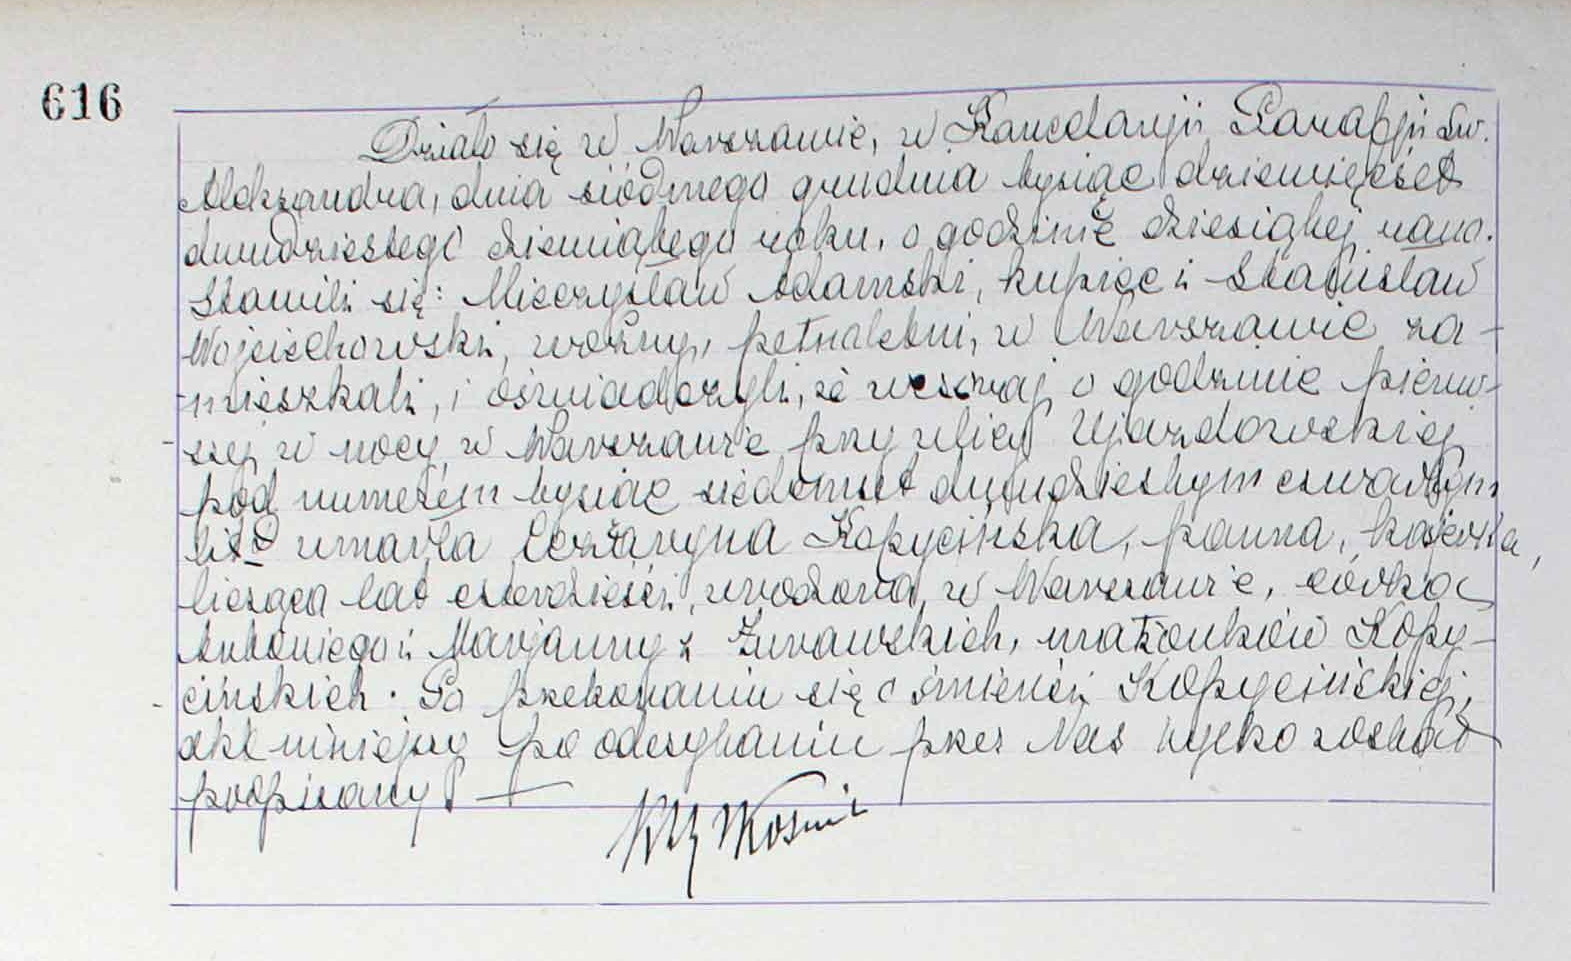 616
Działo się w Warszawie, w Kancelarji Parafji Św.
Aleksandra, dnia siódmego grudnia tysiąc dziewięćset
dwudziestego dziewiątego roku, o godzinie dziesiątej rano.
Stawili się: Mieczysław Adamski, kupiec i Stanisław
Wojciechowski, woźny, pełnoletni, w Warszawie za-
mieszkali, i oświadczyli, że wczoraj o godzinie pierw-
szej w nocy, w Warszawie przy ulicy Ujazdowskiej
pod numerem tysiąc siedemset dwudziestym czwartym
lit D umarła Cezaryna Kopycińska, panna, kasjerka,
licząca lat czterdzieści, urodzona w Warszawie, córka
Antoniego i Marjanny z Żurawskich, małżonków Kopy-
cińskich. Po przekonaniu się o śmierci Kopycińskiej,
akt niniejszy po odczytaniu przez Nas tylko został
podpisany